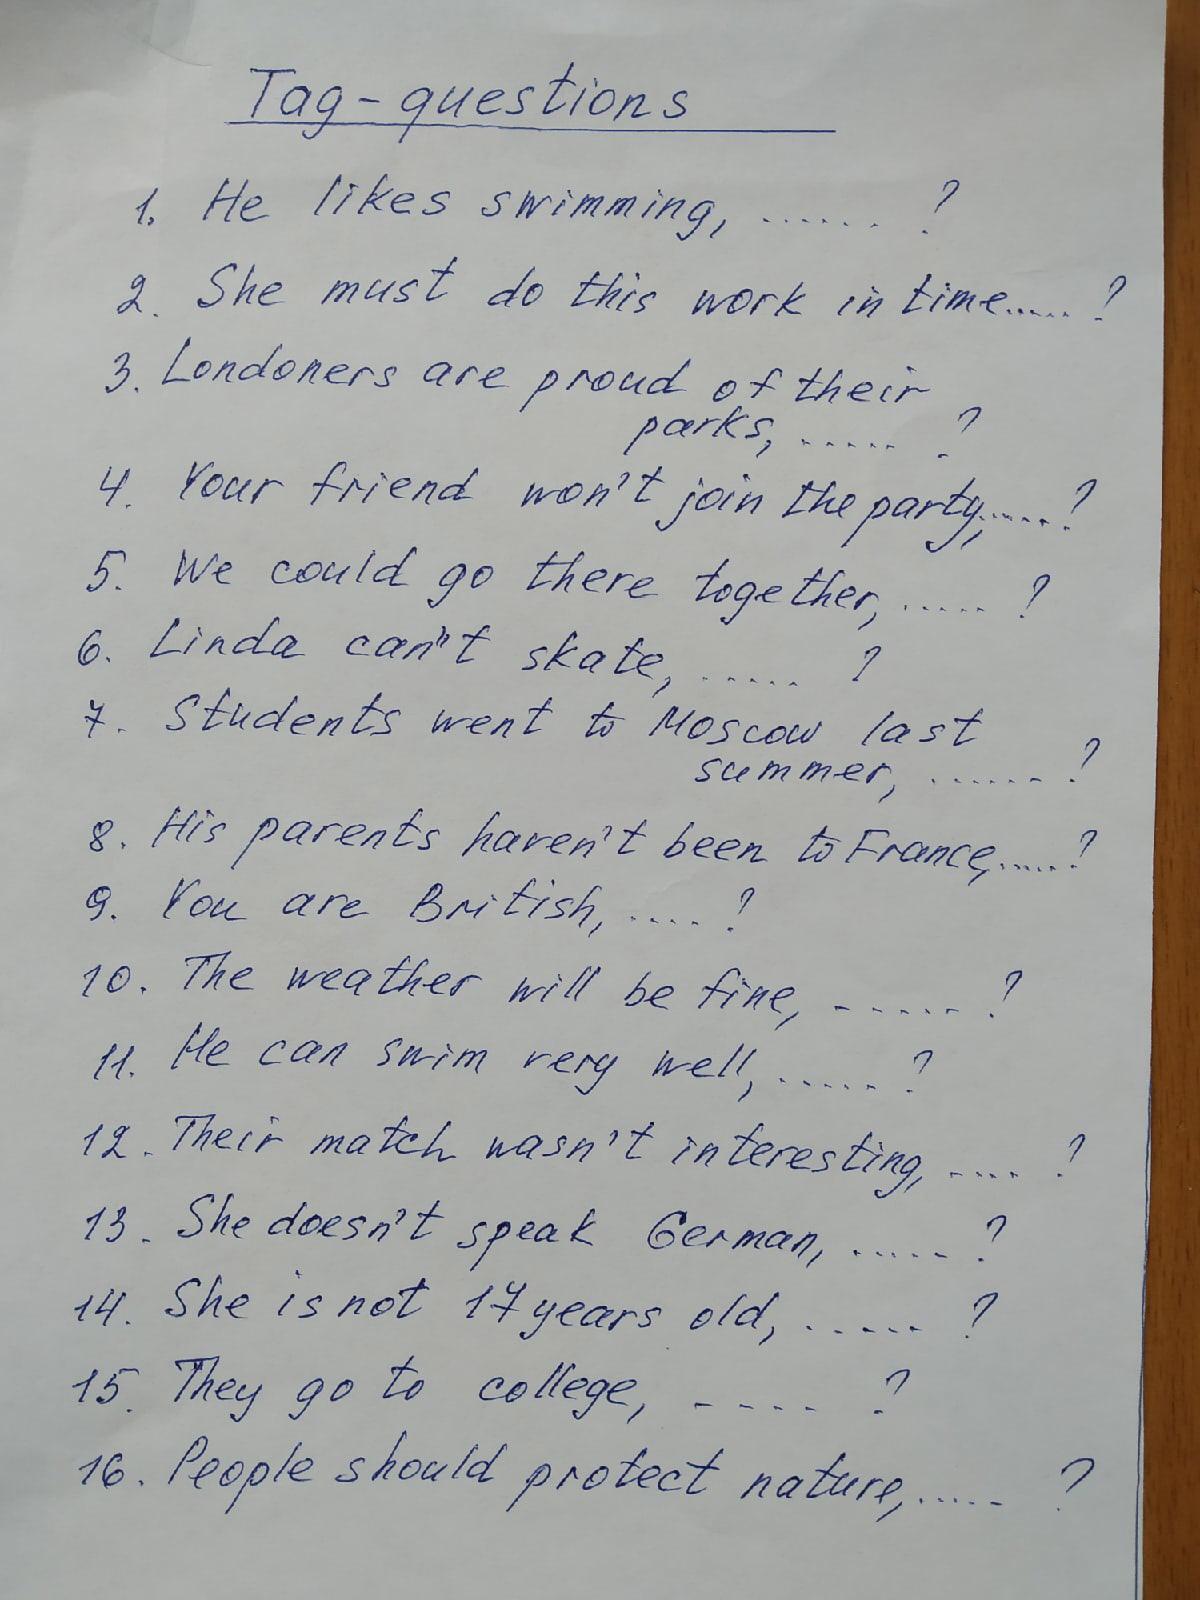 Tag-questions
1. He likes swimming, ...... ?
2. She must do this work in time..... ?
3. Londoners are proud of their
parks, ..... ?
4. Your friend won't join the party,..... ?
5. We could go there together, ..... ?
6. Linda can't skate, ..... ?
7. Students went to Moscow last
summer, ...... ?
8. His parents haven't been to France,..... ?
9. You are British, .... ?
10. The weather will be fine, ...... ?
11. He can swim very well, ..... ?
12. Their match wasn't interesting, .... ?
13. She doesn't speak German, ..... ?
14. She is not 17 years old, ..... ?
15. They go to college, .... ?
16. People should protect nature,..... ?